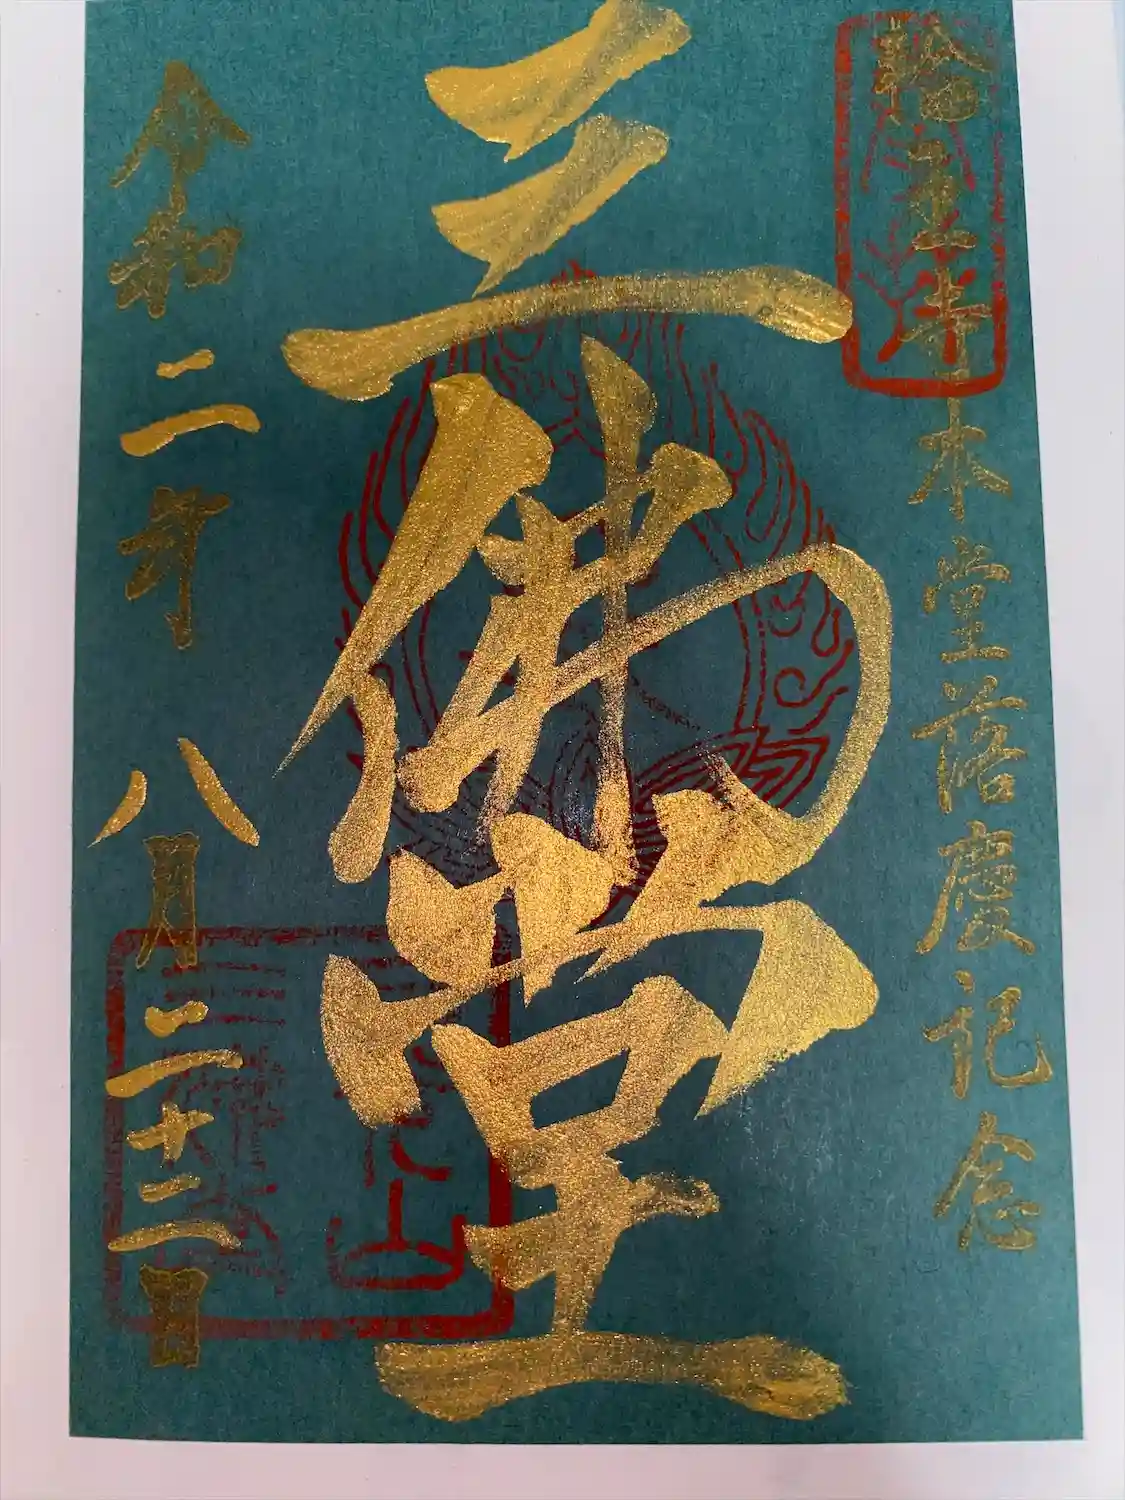 輪王寺本堂落慶記念
三佛堂
令和二年八月二十二日